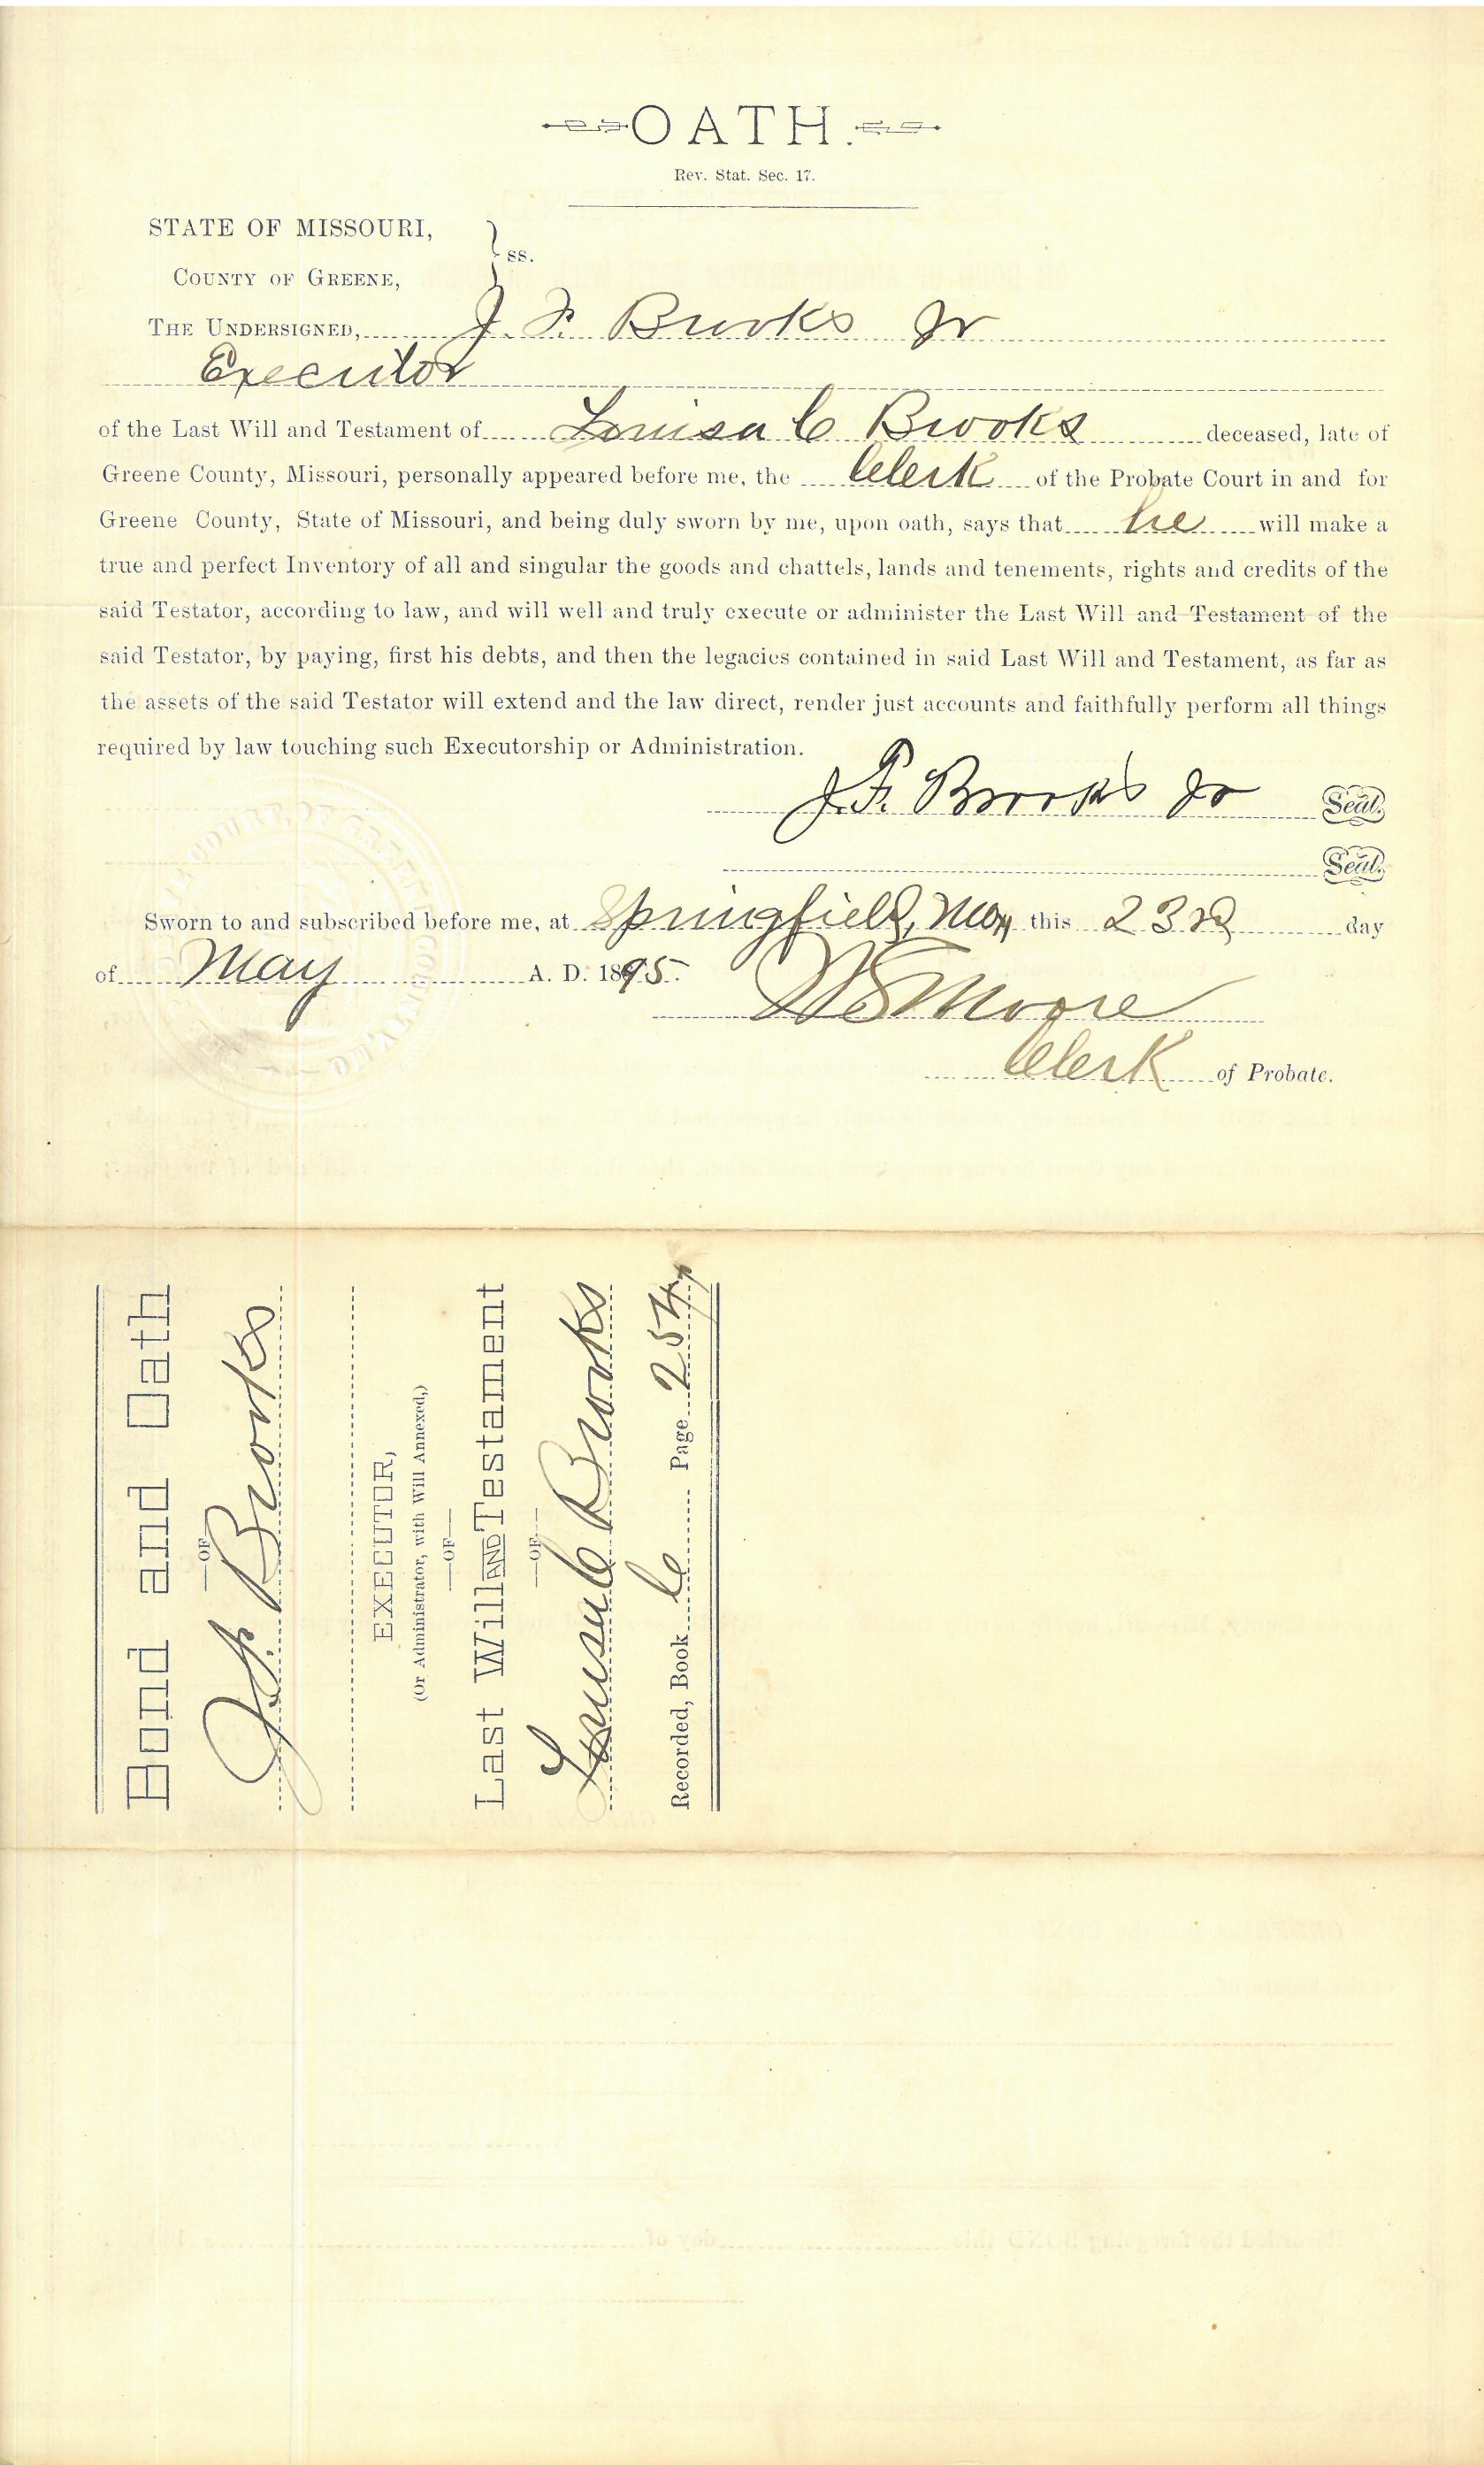 OATH.
Rev. Stat. Sec. 17.
STATE OF MISSOURI,
COUNTY OF GREENE, } ss.
THE UNDERSIGNED, J. F. Brooks Jr
Executor
of the Last Will and Testament of Louisa C Brooks deceased, late of
Greene County, Missouri, personally appeared before me, the Clerk of the Probate Court in and for
Greene County, State of Missouri, and being duly sworn by me, upon oath, says that he will make a
true and perfect Inventory of all and singular the goods and chattels, lands and tenements, rights and credits of the
said Testator, according to law, and will well and truly execute or administer the Last Will and Testament of the
said Testator, by paying, first his debts, and then the legacies contained in said Last Will and Testament, as far as
the assets of the said Testator will extend and the law direct, render just accounts and faithfully perform all things
required by law touching such Executorship or Administration.
J. F. Brooks Jr Seal.
Seal.
Sworn to and subscribed before me, at Springfield, Mo, this 23rd day
of May A. D. 1895.
Moore
Clerk of Probate.
Bond and Oath
—OF—
J. F. Brooks
EXECUTOR,
(Or Administrator, with Will Annexed,)
—OF—
Last Will AND Testament
—OF—
Louisa C Brooks
Recorded, Book C Page 254